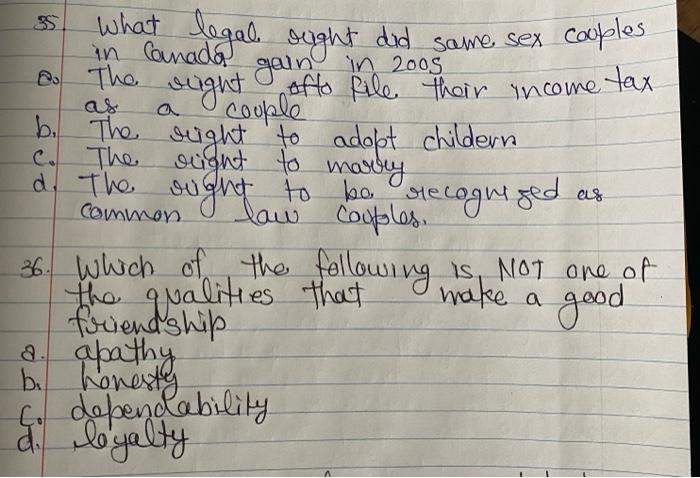 35 What legal right did same sex couples
in Canada gain in 2005
a. The right to file their income tax
as a couple
b. The right to adopt childern
c. The right to marry
d. The right to be recognized as
common law couples.
36. Which of the following is NOT one of
the qualities that make a good
friendship
a. apathy
b. honesty
c. dependability
d. loyalty